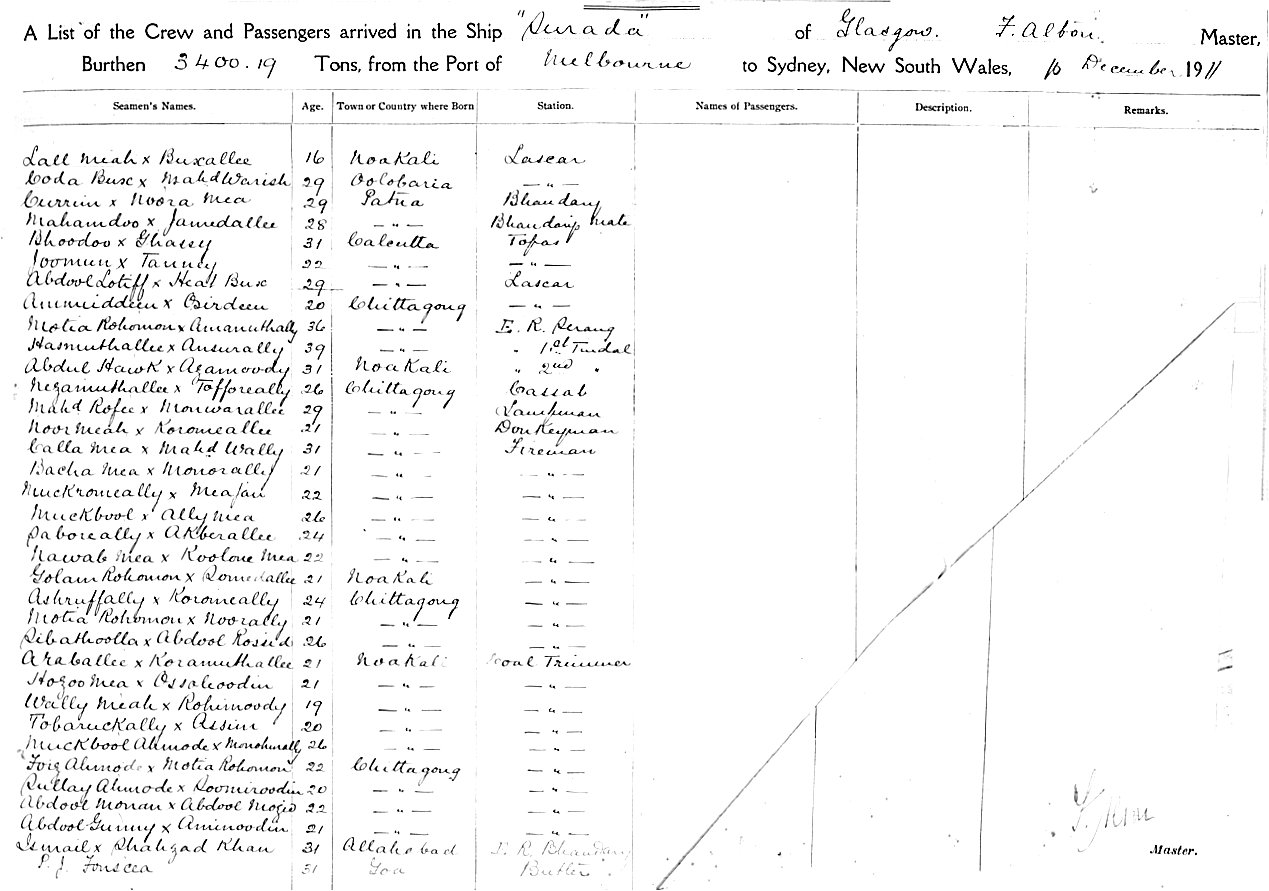 A List of the Crew and Passengers arrived in the Ship "Surada" of Glasgow. F. Albon. Master,
Burthen 3400.19 Tons, from the Port of Melbourne to Sydney, New South Wales, 16 December 1911
Seamen's Names. Age. Town or Country where Born Station. Names of Passengers. Description. Remarks.
Lall Meah x Buxallee 16 Noakali Lascar
Coda Bux x Mahd Warish 29 Oolobaria — " —
Currim x Noora Mea 29 Patna Bhandary
Mahamdoo x Jamedallee 28 — " — Bhandarys Mate
Bhoodoo x Ghassy 31 Calcutta Topas
Joomun x Tanney 22 — " — — " —
Abdool Lotiff x Heal Bux 29 — " — Lascar
Ammiddeen x Osirdeen 20 Chittagong — " —
Motia Rohomon x Amanuthally 36 — " — E. R. Serang
Hasmuthallee x Ansurally 39 — " — " 1st Tindal
Abdul Hawk x Agamoody 31 Noakali " 2nd "
Negamuthallee x Tofforeally 26 Chittagong Cassab
Mahd Rofee x Monwarallee 29 — " — Lampman
Noor Meah x Koromeallee 21 — " — Donkeyman
Calla Mea x Mahd Wally 31 — " — Fireman
Bacha Mea x Monorally 21 — " — — " —
Muckromeally x Meajan 22 — " — — " —
Muckbool x Ally Mea 26 — " — — " —
Saboreally x Akberallee 24 — " — — " —
Nawab Mea x Koolone Mea 22 — " — — " —
Golam Rohomon x Somedallee 21 Noakali — " —
Ashruffally x Koromeally 24 Chittagong — " —
Motia Rohomon x Noorally 21 — " — — " —
Sibathoolla x Abdool Rossid 26 — " — — " —
Araballee x Koramuthallee 21 Noakali Coal Trimmer
Hogoo Mea x Ossahoodin 21 — " — — " —
Wally Meah x Rohimoody 19 — " — — " —
Tobaruckally x Assim 20 — " — — " —
Muckbool Ahmode x Monohurally 26 — " — — " —
Foig Ahmode x Motia Rohomon 22 Chittagong — " —
Sultay Ahmode x Soomiroodin 20 — " — — " —
Abdool Monan x Abdool Mogid 22 — " — — " —
Abdool Gunny x Aminoodin 21 — " — — " —
Ismail x Shahzad Khan 31 Allahabad E. R. Bhandary
P. J. Fonscea 31 Goa Butler
Master.